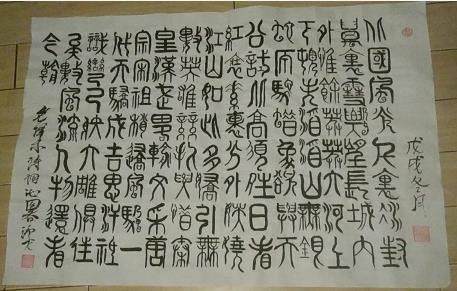 北國風光千里冰封
萬里雪飄望長城內
外惟餘莽莽大河上
下頓失滔滔山舞銀
蛇原馳蠟象欲與天
公試比高須晴日看
紅裝素裹分外妖嬈
江山如此多嬌引無
數英雄競折腰惜秦
皇漢武略輸文采唐
宗宋祖稍遜風騷一
代天驕成吉思汗祇
識彎弓射大雕俱往
矣數風流人物還看
今朝
毛澤東詩詞沁園春
戊戌冬月